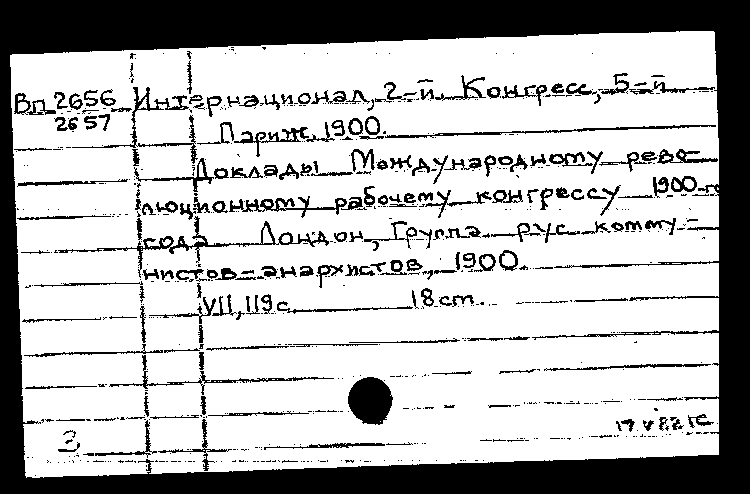 Вп 2656 Интернационал, 2-й. Конгресс, 5-й
2657
Париж. 1900.
Доклады Международному рево-
люционному рабочему конгрессу 1900-го
года Лондон, Группа рус комму-
нистов-анархистов, 1900.
VII, 119 с. 18 cm.
3